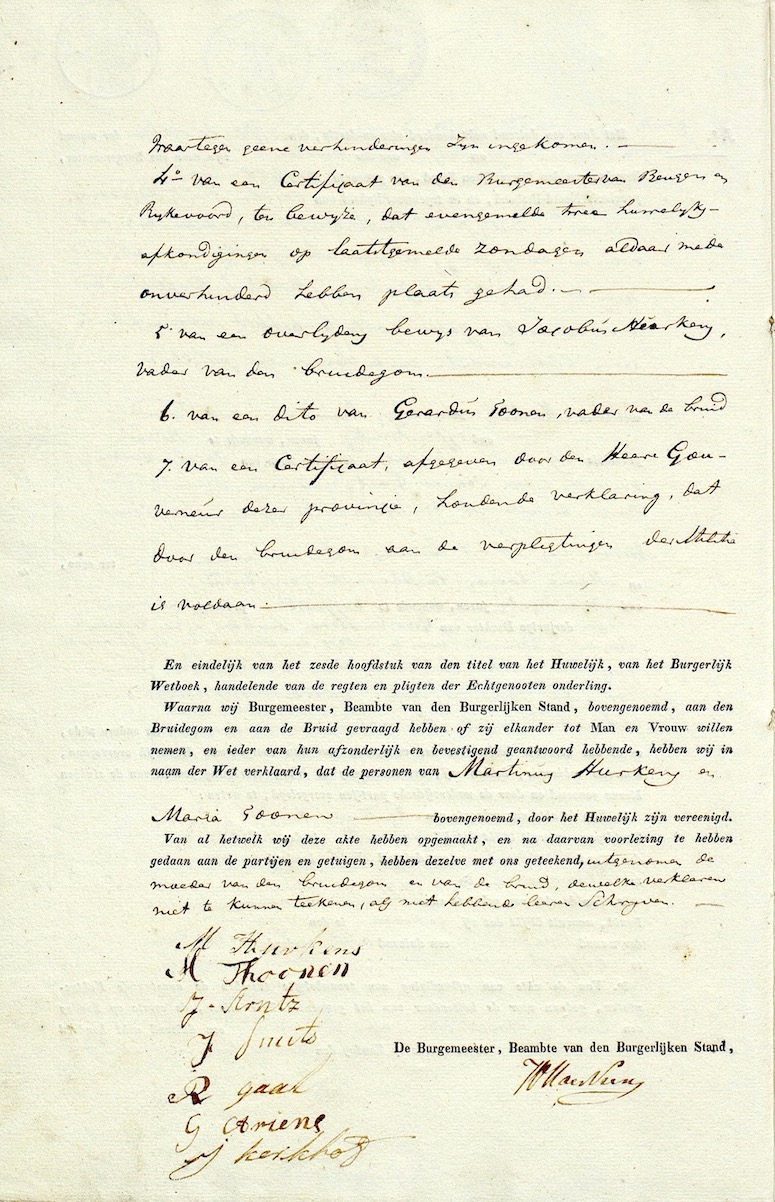 Waartegen geene verhinderingen zyn ingekomen.
4o van een Certificaat van den Burgemeester van Beugen en
Rykevoord, ten bewyze, dat evengemelde twee huwelyks-
afkondigingen op laatstgemelde zondagen aldaar mede
onverhinderd hebben plaats gehad.
5 van een overlydens bewys van Jacobus Heurkens,
vader van den bruidegom.
6. van een dito van Gerardus Toonen, vader van de bruid
7. van een Certificaat, afgegeven door den Heere Gou-
verneur dezer provincie, houdende verklaring, dat
door den bruidegom aan de verpligtingen der Militie
is voldaan.
En eindelijk van het zesde hoofdstuk van den titel van het Huwelijk, van het Burgerlijk
Wetboek, handelende van de regten en pligten der Echtgenooten onderling.
Waarna wij Burgemeester, Beambte van den Burgerlijken Stand, bovengenoemd, aan den
Bruidegom en aan de Bruid gevraagd hebben of zij elkander tot Man en Vrouw willen
nemen, en ieder van hun afzonderlijk en bevestigend geantwoord hebbende, hebben wij in
naam der Wet verklaard, dat de personen van Martinus Hurkens en
Maria Toonen bovengenoemd, door het Huwelijk zijn vereenigd.
Van al hetwelk wij deze akte hebben opgemaakt, en na daarvan voorlezing te hebben
gedaan aan de partijen en getuigen, hebben dezelve met ons geteekend, uitgenomen de
moeder van den bruidegom en van de bruid, dewelke verklaren
niet te kunnen teekenen, als niet hebbende leeren Schryven.
M Heurkens
M Thoonen
J. Arntz
J Smits
R gaal
G Ariens
J kerkhof
De Burgemeester, Beambte van den Burgerlijken Stand,